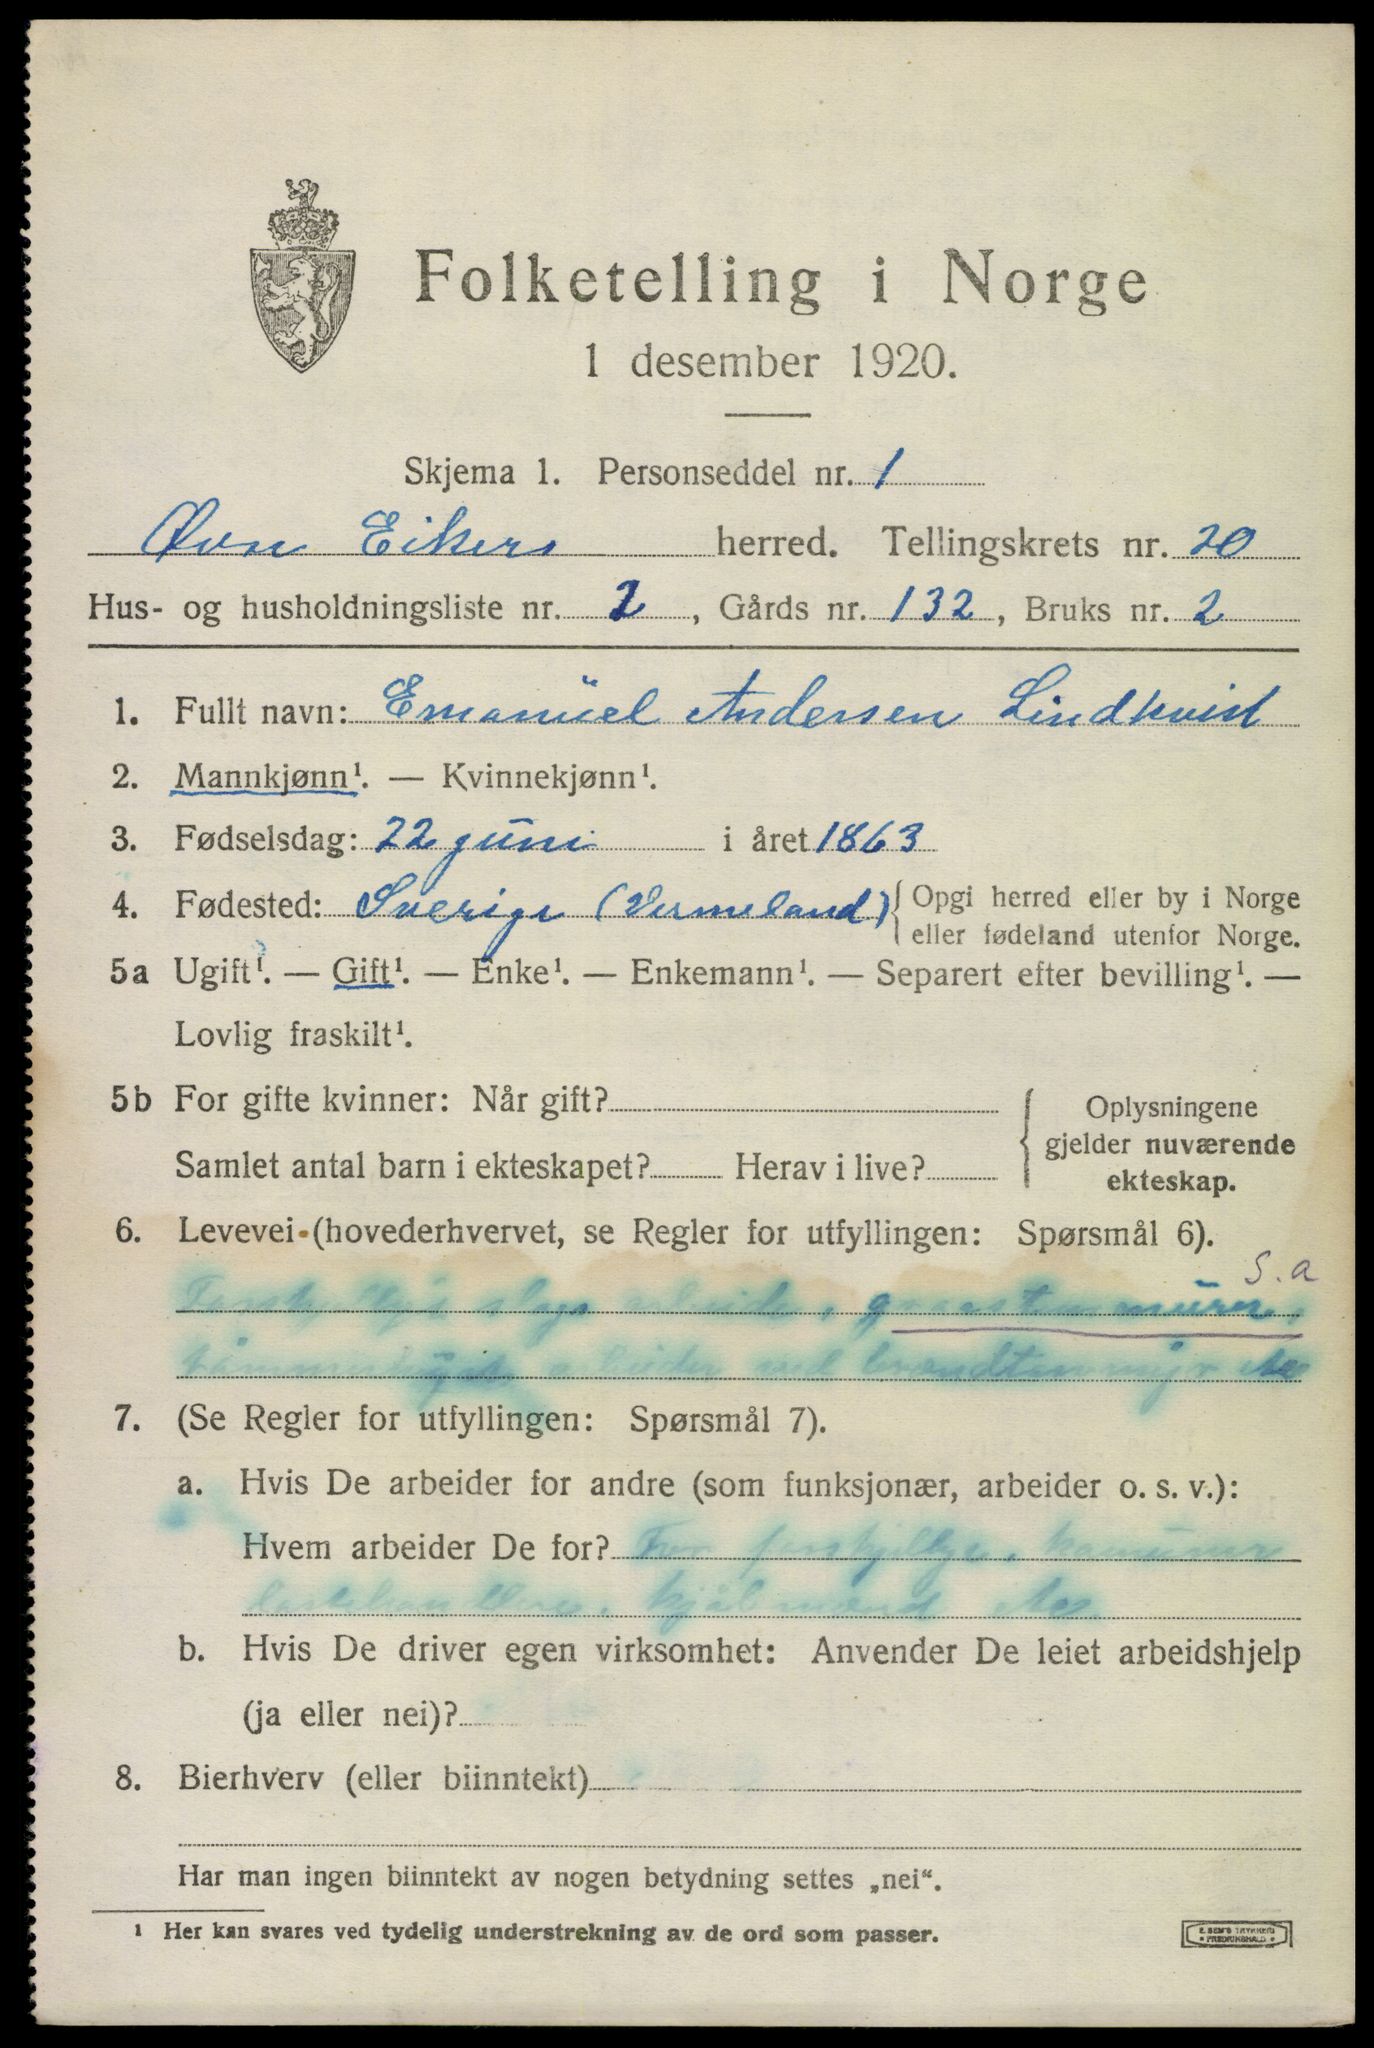 Folketelling i Norge
1 desember 1920.
Skjema 1. Personseddel nr. 1
Øvre Eikers herred. Tellingskrets nr. 20
Hus- og husholdningsliste nr. 2, Gårds nr. 132, Bruks nr. 2
1. Fullt navn: Emanuel Andersen Lindkvist
2. Mannkjønn¹. — Kvinnekjønn¹.
3. Fødselsdag: 22 juni i året 1863
4. Fødested: Sverige (Vermeland) { Opgi herred eller by i Norge
eller fødeland utenfor Norge.
5a Ugift¹. — Gift¹. — Enke¹. — Enkemann¹. — Separert efter bevilling¹. —
Lovlig fraskilt¹.
5b For gifte kvinner: Når gift? { Oplysningene
gjelder nuværende
Samlet antal barn i ekteskapet? Herav i live?
ekteskap.
6. Levevei (hovederhvervet, se Regler for utfyllingen: Spørsmål 6).
S.a
slags
arbeider ved
7. (Se Regler for utfyllingen: Spørsmål 7).
a. Hvis De arbeider for andre (som funksjonær, arbeider o. s. v.):
Hvem arbeider De for? For forskjellige,
b. Hvis De driver egen virksomhet: Anvender De leiet arbeidshjelp
(ja eller nei)?
8. Bierhverv (eller biinntekt)
Har man ingen biinntekt av nogen betydning settes „nei“.
¹ Her kan svares ved tydelig understrekning av de ord som passer.
E. SEM'S TRYKKERI
• FREDRIKSHALD •